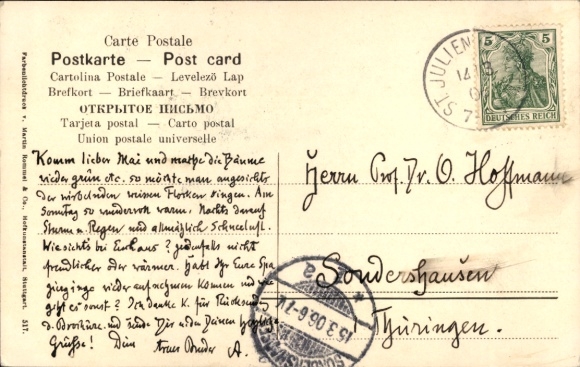 Carte Postale
Postkarte — Post card
Cartolina Postale — Levelező Lap
Brefkort — Briefkaart — Brevkort
ОТКРЫТОЕ ПИСЬМО
Tarjeta postal — Carto postal
Union postale universelle
Farbenlichtdruck v. Martin Rommel & Co., Hofkunstanstalt, Stuttgart. 517.
Komm lieber Mai und mache die Bäume
wieder grün etc. so möchte man angesichts
der wirbelnden weissen Flocken singen. Am
Sonntag so wundervoll warm, Nachts darauf
Sturm u. Regen und allmählich Schneeluft.
Wie siehts bei Euch aus? jedenfalls nicht
freundlicher oder wärmer. Habt Ihr Eure Spa
ziergänge wieder aufnehmen können und wie
geht es sonst? Ich danke K. für Rücksendg
d. Broschüre und sende Dir u. den Deinen herzliche
Grüsse! Dein treuer Bruder A.
ST. JULIEN
14
7
5
DEUTSCHES REICH
Herrn Prof. Dr. O. Hoffmann
Sondershausen
i Thüringen.
SONDERSHAUSEN
15.3.06.6-7V.